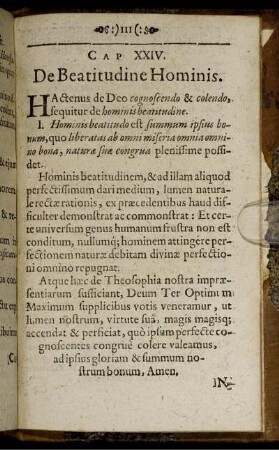 )III(
CAP XXIV.
De Beatitudine Hominis.
HActenus de Deo cognoscendo & colendo,
sequitur de hominis beatitudine.
I. Hominis beatitudo est summum ipsius bo-
num, quo liberatus ab omni miseria omnia omni-
no bona, naturæ suæ congrua plenissime possi-
det.
Hominis beatitudinem, & ad illam aliquod
perfectissimum dari medium, lumen natura-
le rectæ rationis, ex præcedentibus haud dif-
ficulter demonstrat ac commonstrat: Et cer-
te universum genus humanum frustra non est
conditum, nullumq; hominem attingere per-
fectionem naturæ debitam divinæ perfectio-
ni omnino repugnat.
Atque hæc de Theosophia nostra impræ-
sentiarum sufficiant, Deum Ter Optimum
Maximum supplicibus votis veneramur, ut
lumen nostrum, virtute suâ, magis magisq;
accendat & perficiat, quò ipsum perfecte co-
gnoscentes congruè colere valeamus,
ad ipsius gloriam & summum no-
strum bonum, Amen,
IN-